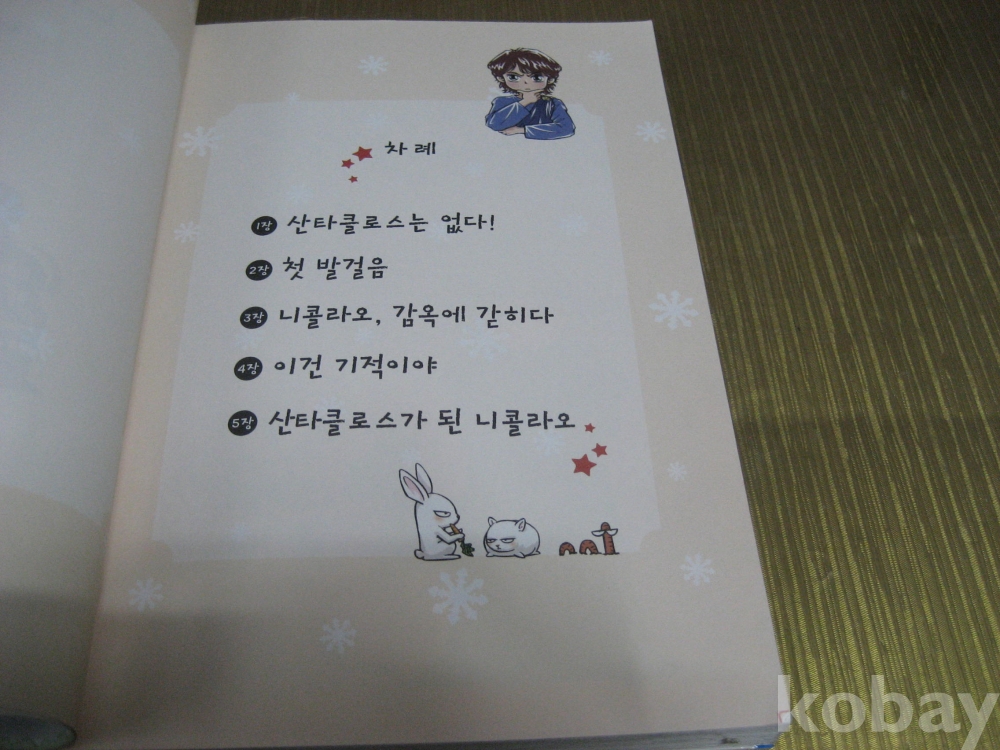 차례
1장 산타클로스는 없다!
2장 첫 발걸음
3장 니콜라오, 감옥에 갇히다
4장 이건 기적이야
5장 산타클로스가 된 니콜라오
kobay